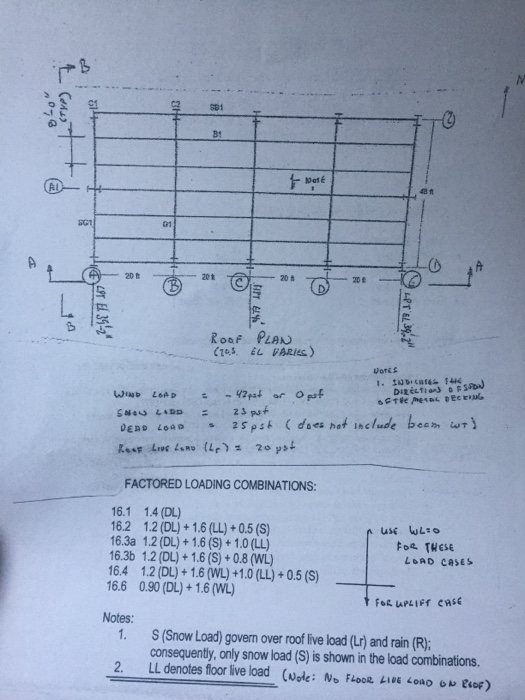 B
N
C1
C2
SB1
2
B1
NOTE
1
A1
48 ft
SG1
G1
A
20 ft
20 ft
20 ft
20 ft
1
A
A
B
C
D
B
ROOF PLAN
(T.O.S. EL VARIES)
NOTES
1. INDICATES THE
DIRECTIONS OF SPAN
OF THE METAL DECKING
WIND LOAD = - 42psf or 0 psf
SNOW LOAD = 23 psf
DEAD LOAD = 25 psf (does not include beam WT)
ROOF LIVE LOAD (Lr) = 20 psf
FACTORED LOADING COMBINATIONS:
16.1 1.4 (DL)
16.2 1.2 (DL) + 1.6 (LL) + 0.5 (S)
16.3a 1.2 (DL) + 1.6 (S) + 1.0 (LL)
16.3b 1.2 (DL) + 1.6 (S) + 0.8 (WL)
16.4 1.2 (DL) + 1.6 (WL) +1.0 (LL) + 0.5 (S)
16.6 0.90 (DL) + 1.6 (WL)
USE WL=0
FOR THESE
LOAD CASES
FOR UPLIFT CASE
Notes:
1. S (Snow Load) govern over roof live load (Lr) and rain (R);
consequently, only snow load (S) is shown in the load combinations.
2. LL denotes floor live load (Note: NO FLOOR LIVE LOAD ON ROOF)